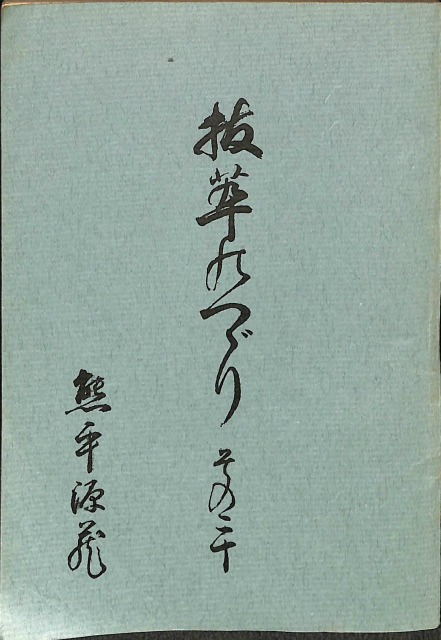 抜萃のつゞり その二十
熊平源蔵